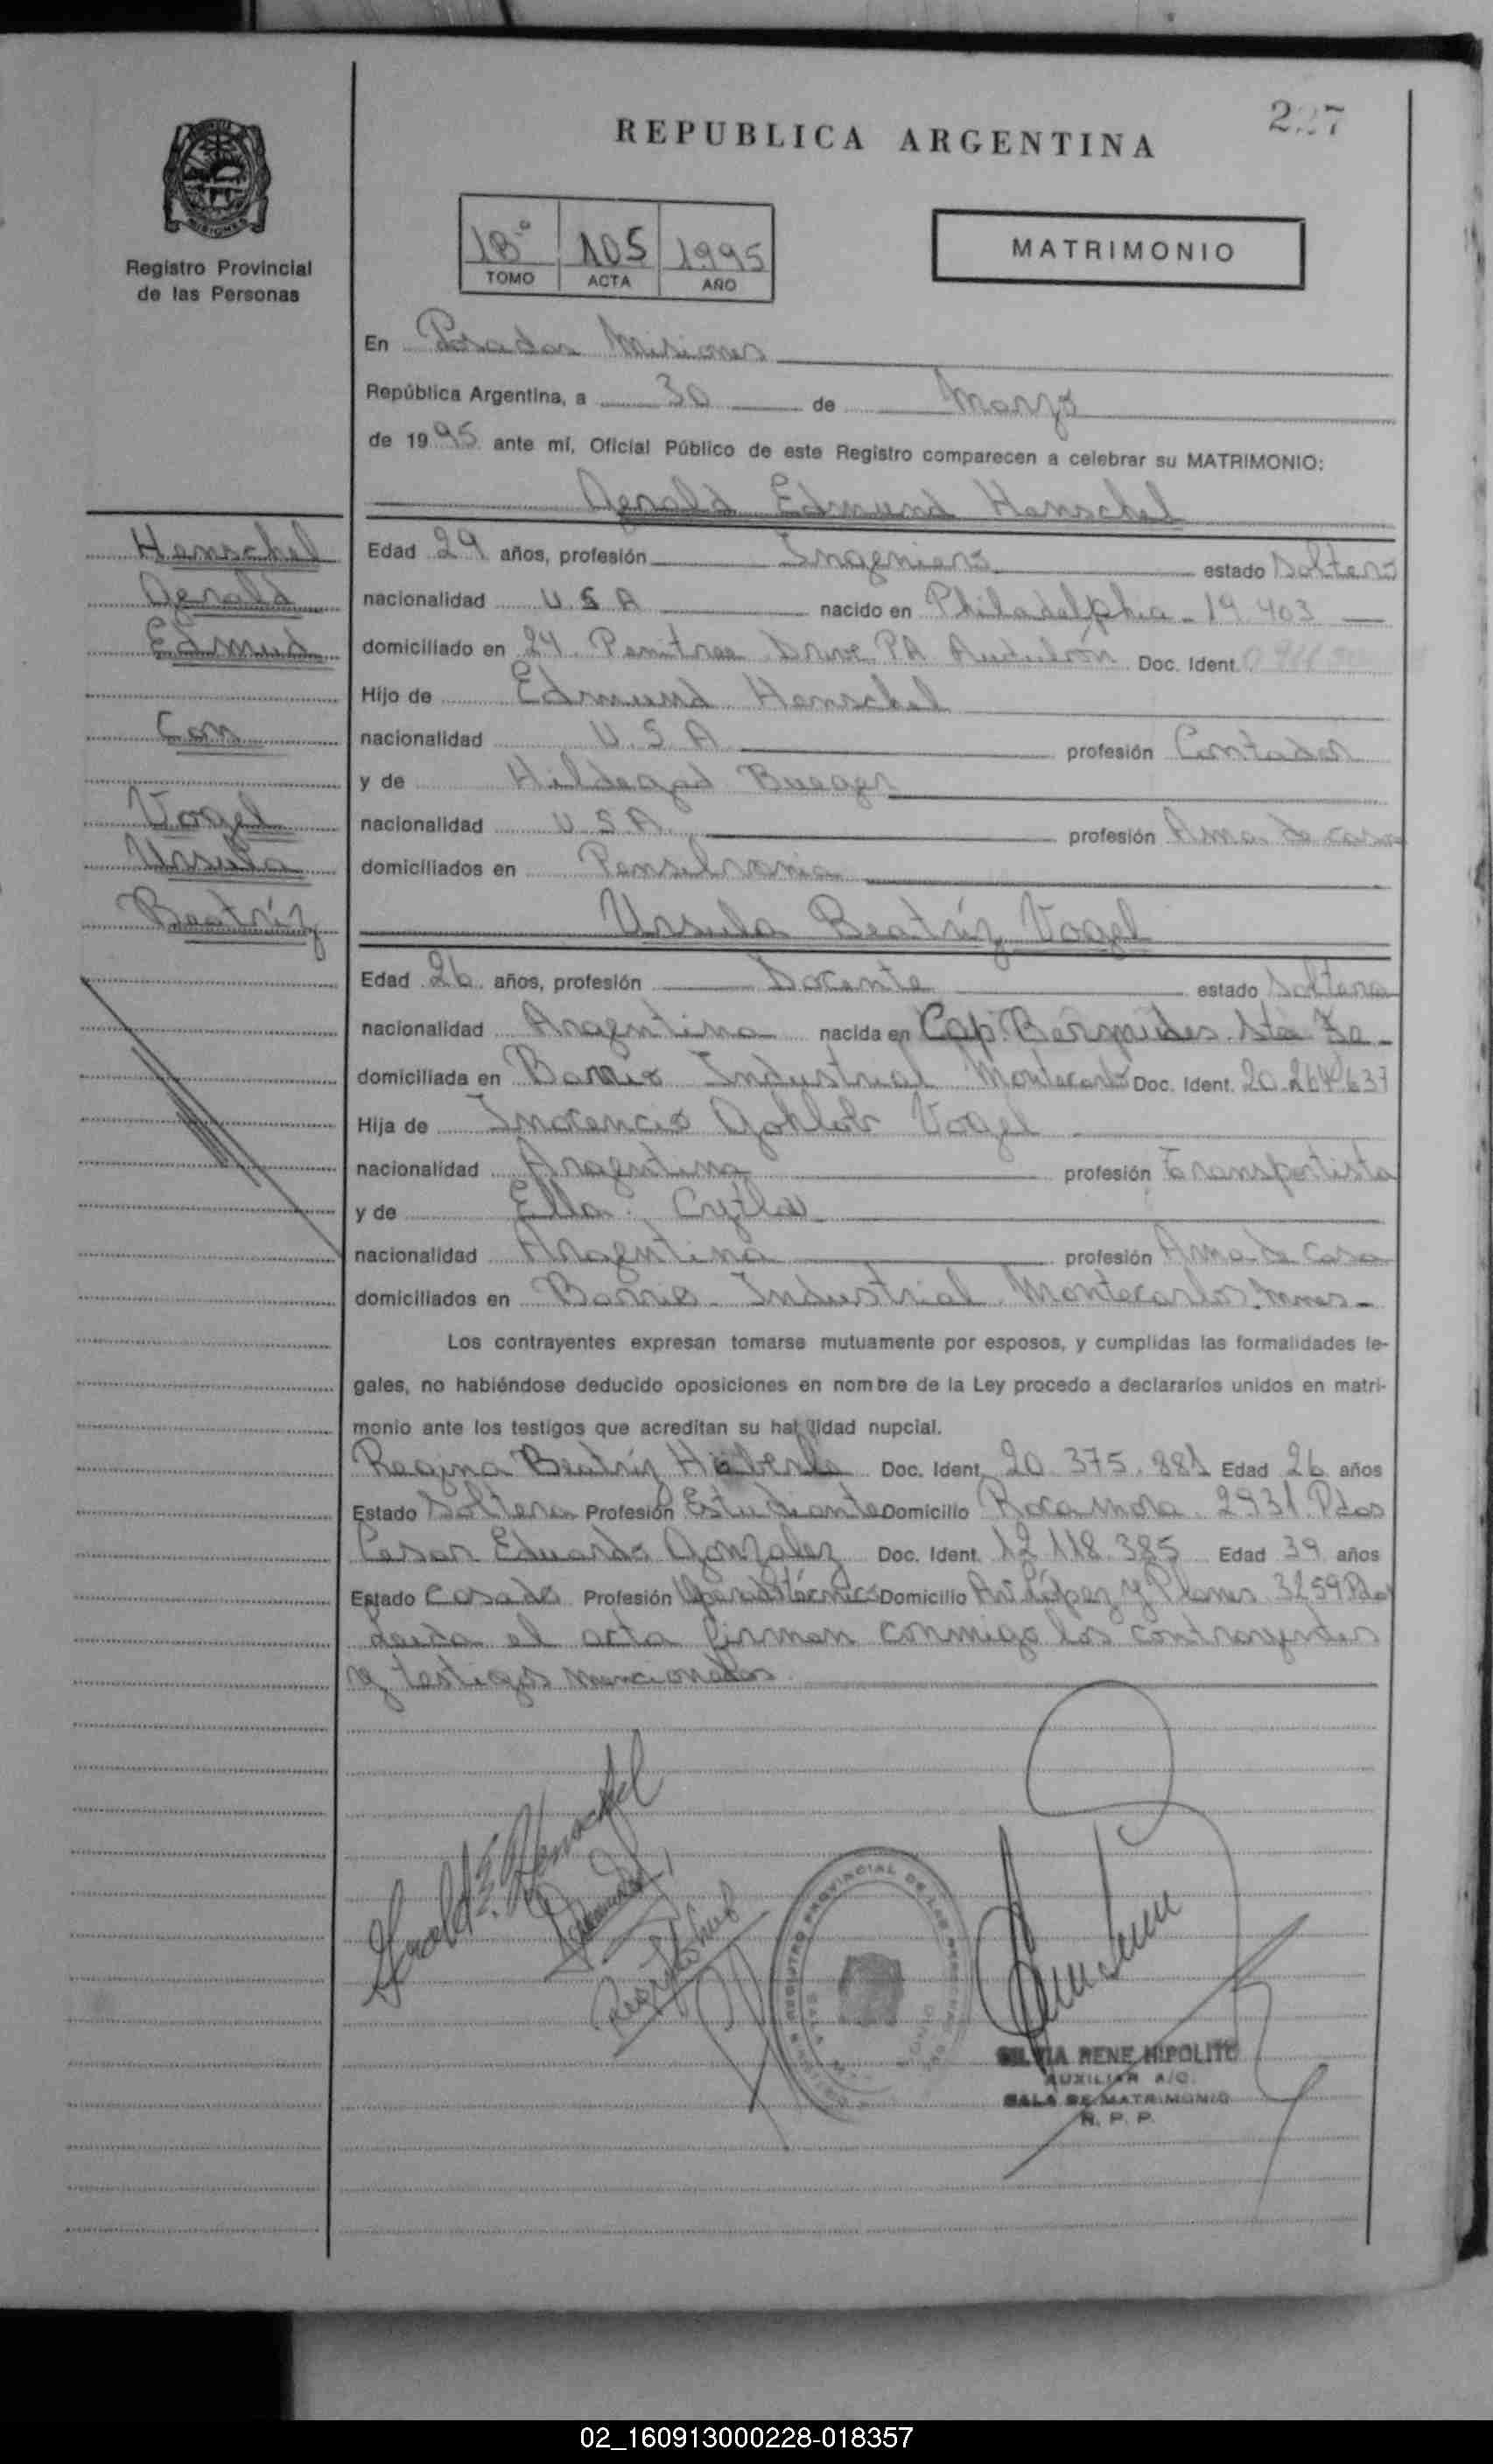 227
REPUBLICA ARGENTINA
Registro Provincial
de las Personas
18º 105 1995
TOMO ACTA AÑO
MATRIMONIO
En Posadas Misiones
República Argentina, a 30 de Marzo
de 1995 ante mí, Oficial Público de este Registro comparecen a celebrar su MATRIMONIO:
Gerald Edmund Henschel
Henschel
Gerald
Edmund
Con
Vogel
Ursula
Beatríz
Edad 29 años, profesión Ingeniero estado Soltero
nacionalidad U.S.A nacido en Philadelphia - 19.403
domiciliado en 24 Drive PA Doc. Ident.
Hijo de Edmund Henschel
nacionalidad U.S.A profesión Contador
y de Hildegad
nacionalidad U.S.A. profesión Ama de casa
domiciliados en Pensilvania
Ursula Beatríz Vogel
Edad 26 años, profesión Docente estado Soltera
nacionalidad Argentina nacida en Cap. Bermudes. Sta Fe -
domiciliada en Barrio Industrial Montecarlo Doc. Ident. 20.264.637
Hija de Inocencio Vogel
nacionalidad Argentina profesión Transportista
y de Ella
nacionalidad Argentina profesión Ama de Casa
domiciliados en Barrio Industrial Montecarlo. Mnes-
Los contrayentes expresan tomarse mutuamente por esposos, y cumplidas las formalidades le-
gales, no habiéndose deducido oposiciones en nombre de la Ley procedo a declararlos unidos en matri-
monio ante los testigos que acreditan su habilidad nupcial.
Regina Beatríz Häberle Doc. Ident. 20.375.881 Edad 26 años
Estado Soltera Profesión Estudiante Domicilio Rocamora 2931 Pdas
Cesar Eduardo Gonzalez Doc. Ident. 12.118.385 Edad 39 años
Estado Casado Profesión Domicilio Av. López y Planes 3259 Pdas
Leida el acta firman conmigo los contrayentes
y testigos mencionados
Gerald E. Henschel
REGISTRO PROVINCIAL DE LAS PERSONAS
SILVIA RENE HIPOLITO
AUXILIAR A/C
SALA DE MATRIMONIO
R. P. P.
02_160913000228-018357